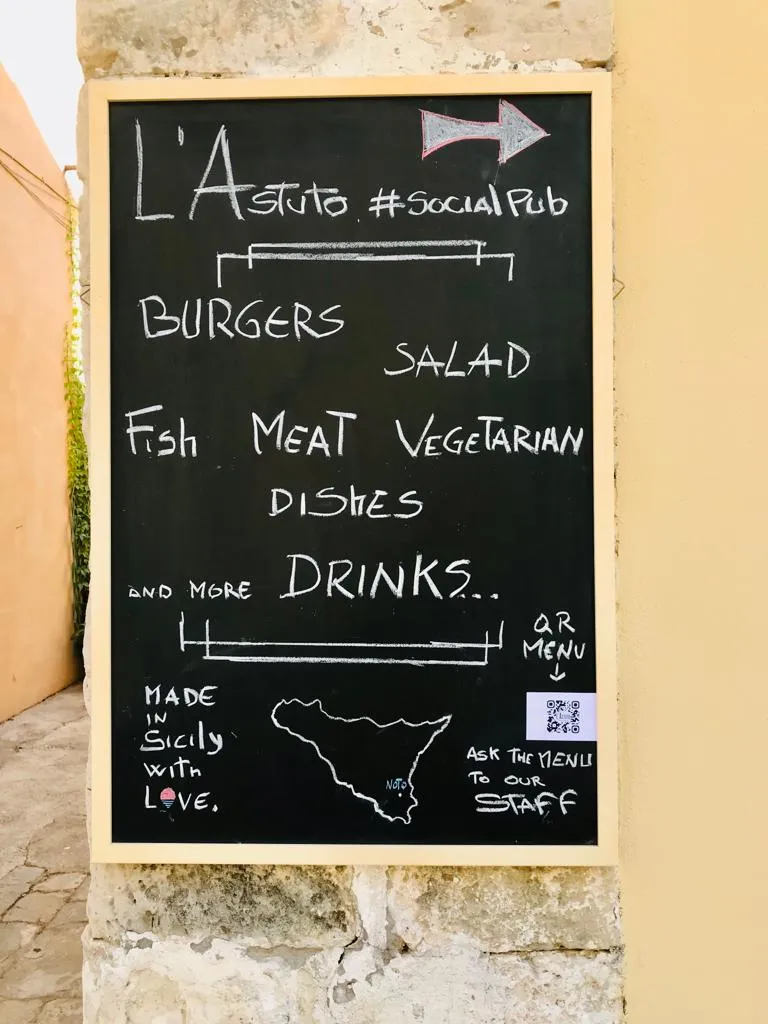 L'Astuto #SocialPub
BURGERS
SALAD
Fish MEAT VEGETARIAN
DISHES
AND MORE DRINKS...
QR
MENU
MADE
IN
Sicily
with
LOVE.
NOTO
ASK THE MENU
TO OUR
STAFF